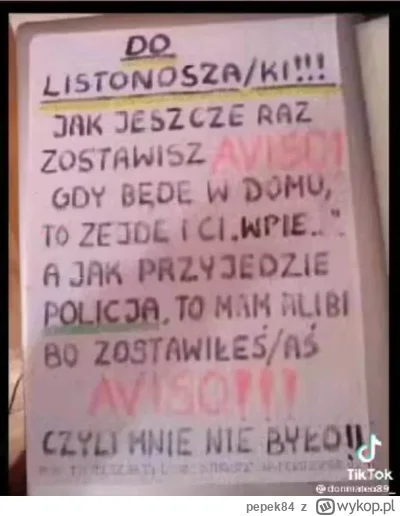 DO
LISTONOSZA/KI!!!
JAK JESZCZE RAZ
ZOSTAWISZ AVISO!
GDY BĘDE W DOMU,
TO ZEJDE I CI „WPIE..."
A JAK PRZYJEDZIE
POLICJA, TO MAM ALIBI
BO ZOSTAWIŁEŚ/AŚ
AVISO!!!
CZYLI MNIE NIE BYŁO!!
TikTok
@donmateo89_
pepek84 z wykop.pl